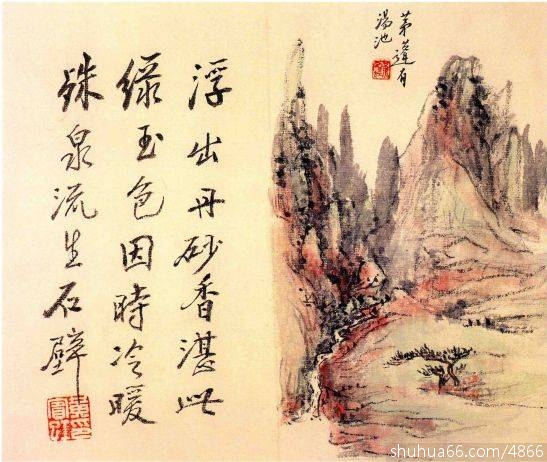 茅蓬有
湯池
浮出丹砂香湛此
绿玉色因時冷暖
殊泉流生石壁
shuhua66.com/4866